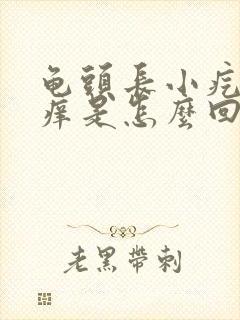 龟頭長小疙
痒是怎麼回
老黑帶刺